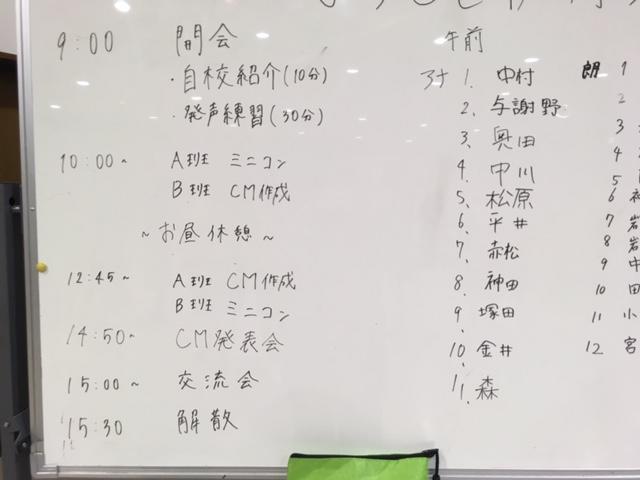 9:00 開会
・自校紹介(10分)
・発声練習(30分)
10:00~ A班 ミニコン
B班 CM作成
~お昼休憩~
12:45~ A班 CM作成
B班 ミニコン
14:50~ CM発表会
15:00~ 交流会
15:30 解散
午前
アナ 1. 中村
2. 与謝野
3. 奥田
4. 中川
5. 松原
6. 平井
7. 赤松
8. 神田
9. 塚田
10. 金井
11. 森
朗 1
2
3
4
5
6 神
7 岩
8 岩
9 中
10 田
11 小
12 宮